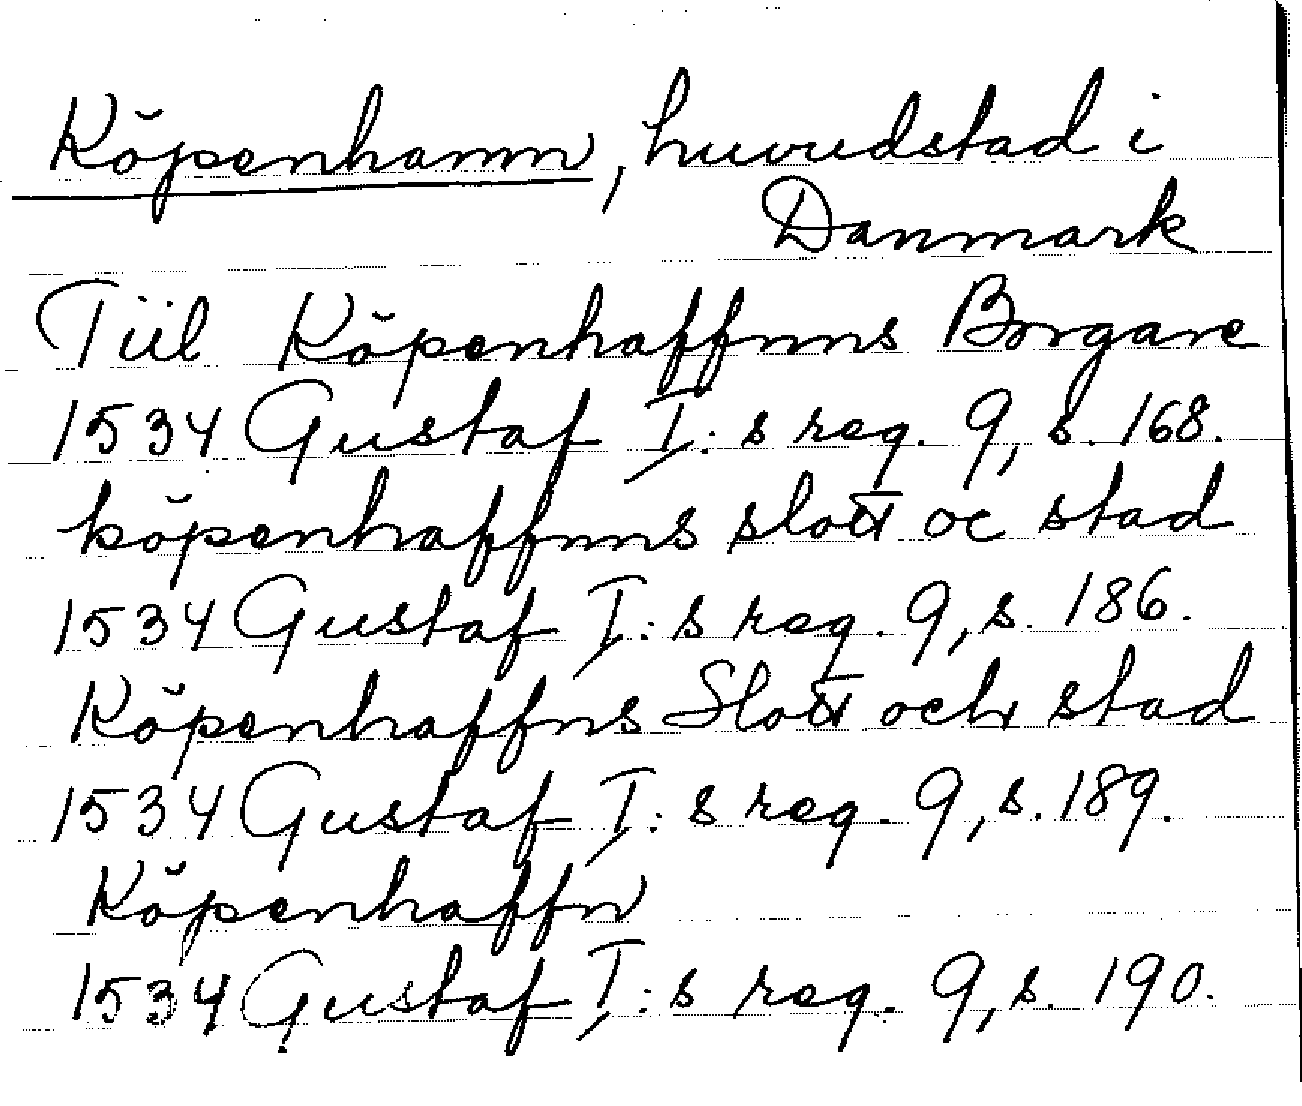 Köpenhamn, huvudstad i
Danmark
Tiil Köpenhaffnns Borgare
1534 Gustaf I:s reg. 9, s. 168.
köpenhaffnns slott oc stad
1534 Gustaf I:s reg. 9, s. 186.
Köpenhaffns Slott och stad
1534 Gustaf I:s reg. 9, s. 189.
Köpenhaffn
1534 Gustaf I:s reg. 9, s. 190.